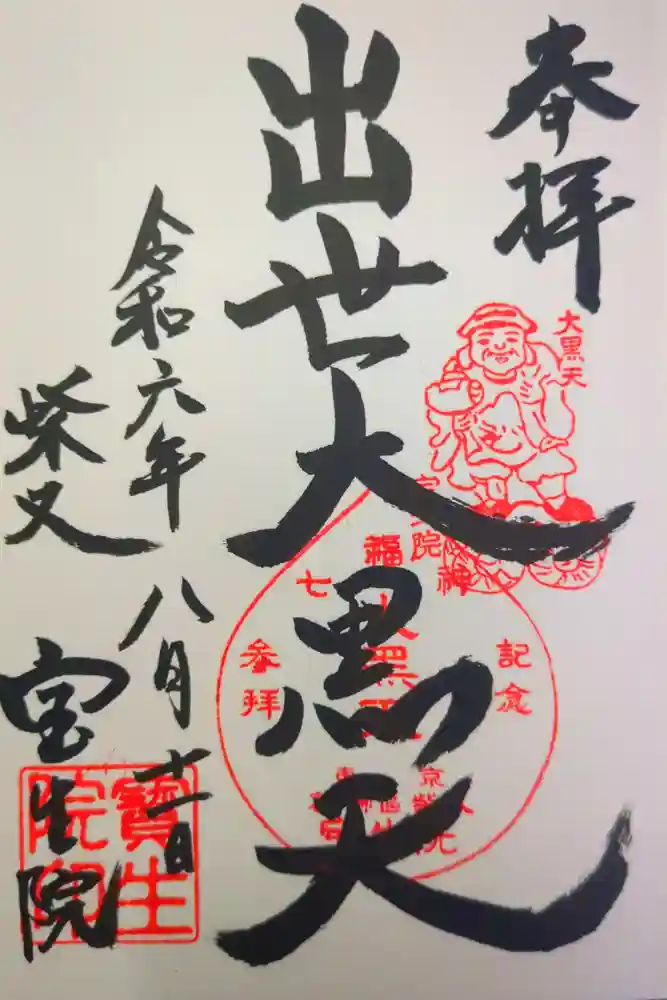 奉拝
大黒天
出世大黒天
七福神
参拝
記念
令和六年八月十一日
柴又
宝生院
寳生院印